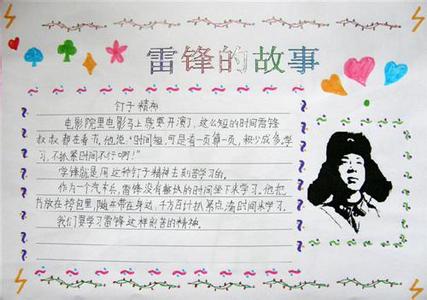 雷锋的故事
钉子精神
电影院里电影马上就要开演了,这么短的时间雷锋
叔叔都在看书,他说:“时间短,可是看一页算一页,积少成多,学
习,不抓紧时间不行啊!”
雷锋就是用这种钉子精神去刻苦学习的。
作为一个汽车兵,雷锋没有整块的时间坐下来学习。他把
书放在挎包里,随身带在身边,千方百计抓紧点滴时间来学习。
我们要学习雷锋这样刻苦的精神。